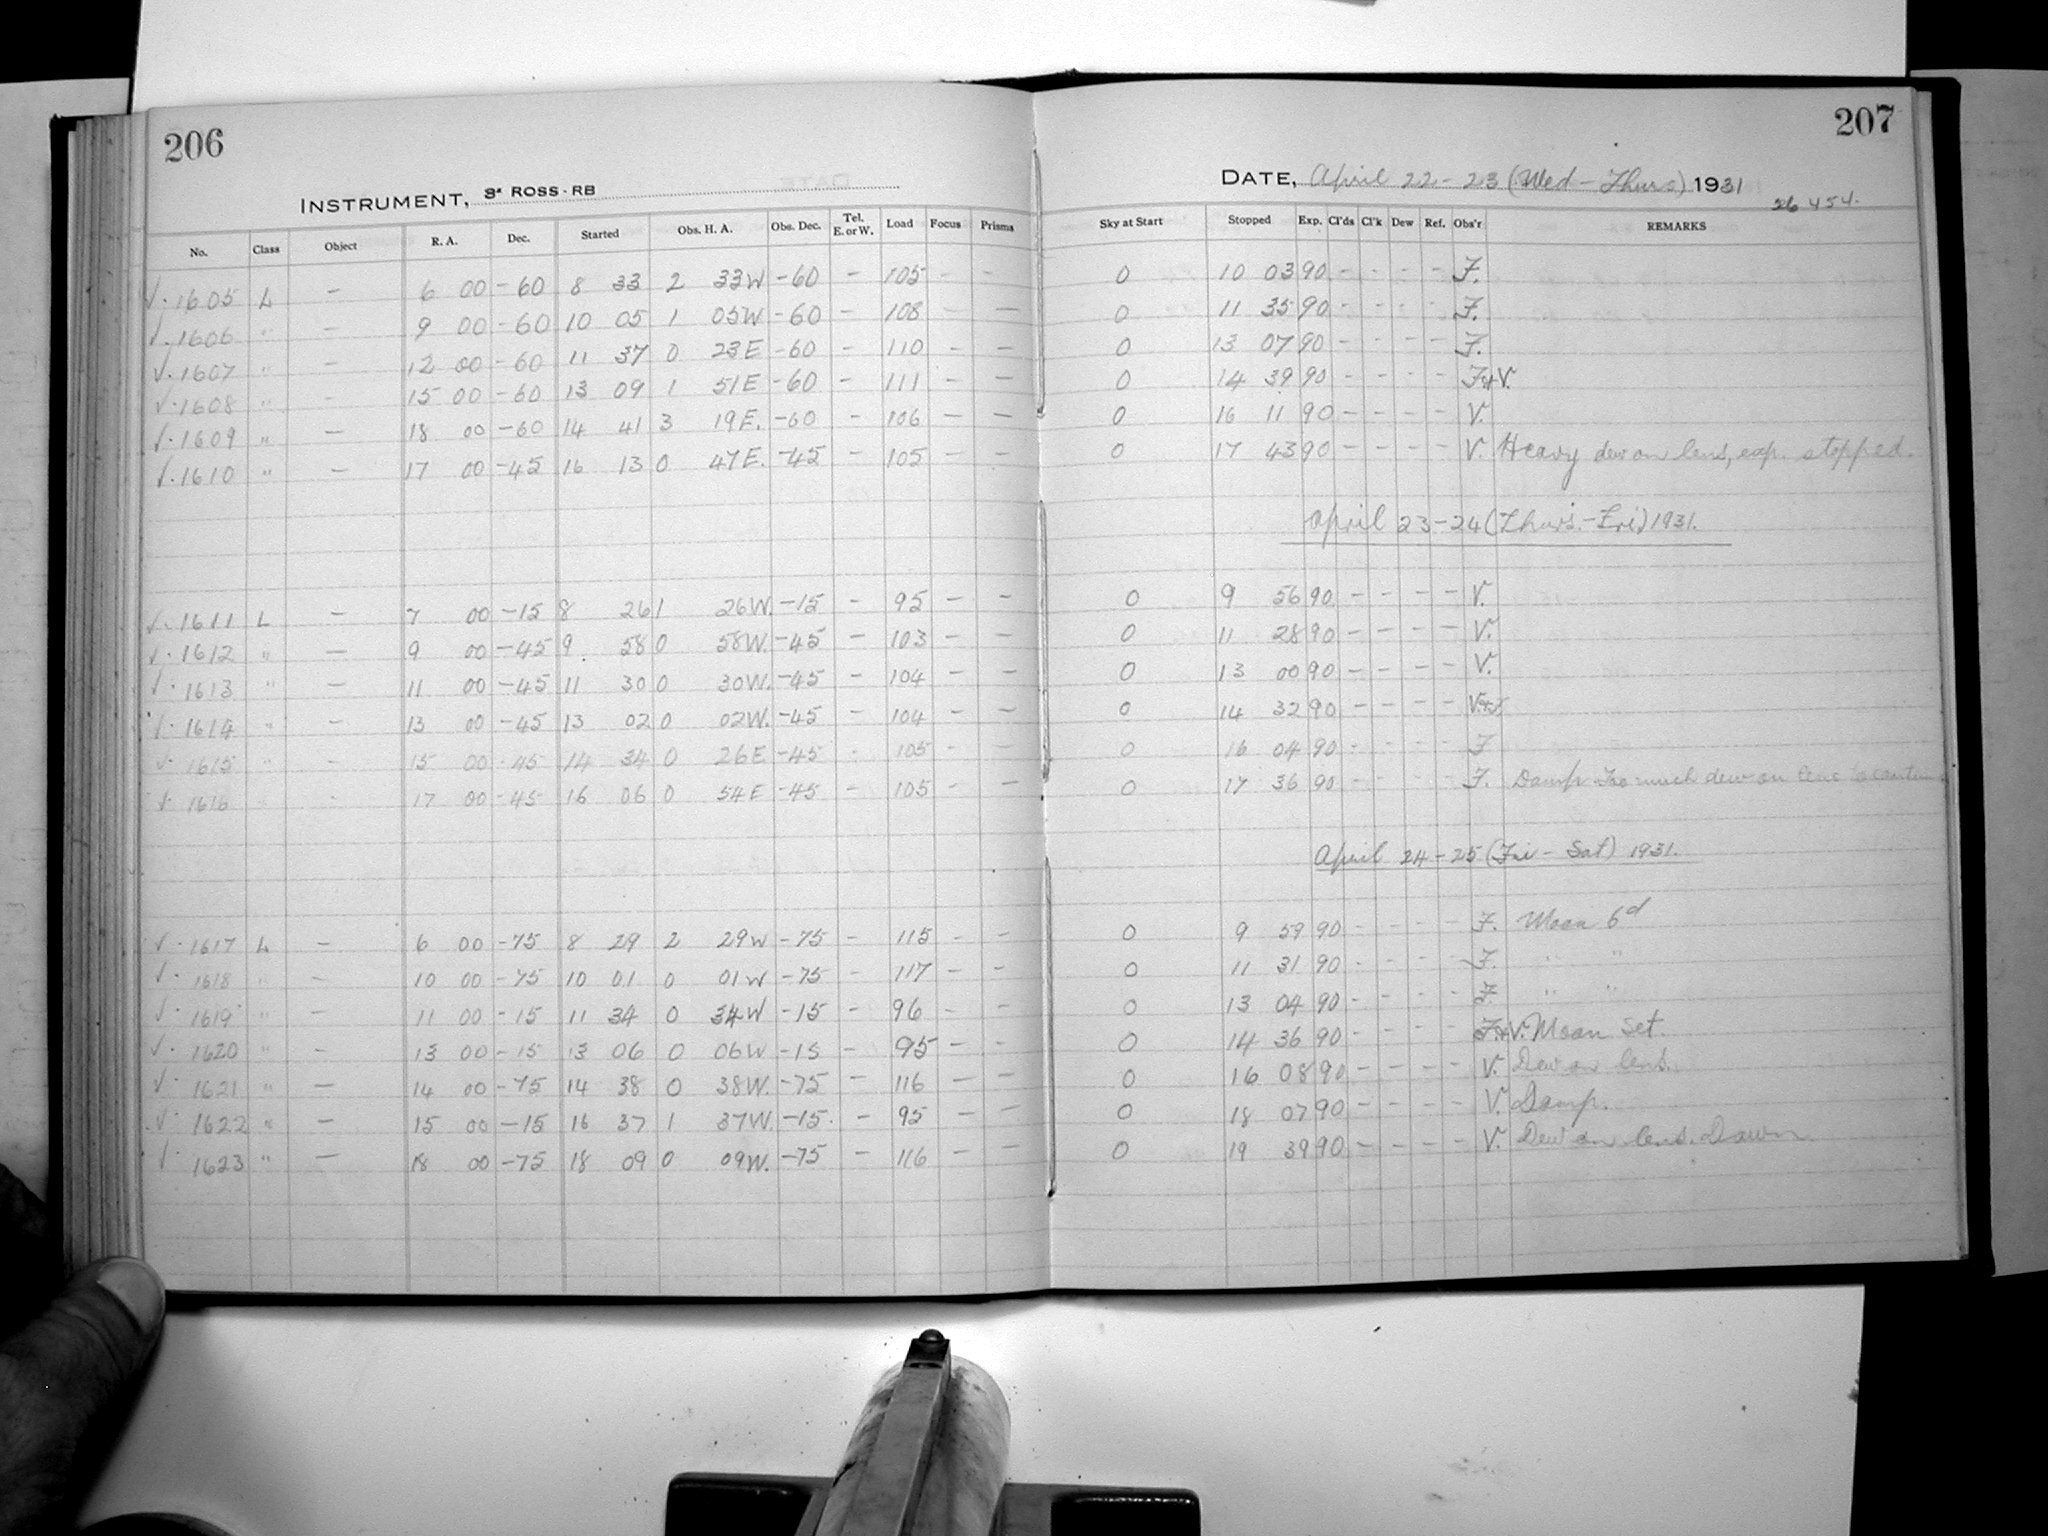 206
INSTRUMENT, 3" ROSS-RB
No. Class Object R. A. Dec. Started Obs. H. A. Obs. Dec. Tel. E. or W. Load Focus Prisms
√ · 1605 L — 6 00 -60 8 33 2 33W -60 — 105 - -
√ · 1606 " — 9 00 -60 10 05 1 05W -60 — 108 - —
√ · 1607 " — 12 00 -60 11 37 0 23E -60 — 110 — —
√ · 1608 " - 15 00 -60 13 09 1 51E -60 — 111 — —
√ · 1609 " — 18 00 -60 14 41 3 19E. -60 — 106 — —
√ · 1610 " — 17 00 -45 16 13 0 47E. -45 — 105 — —
√ · 1611 L — 7 00 -15 8 26 1 26W. -15 — 95 — —
√ · 1612 " — 9 00 -45 9 58 0 58W. -45 — 103 — —
√ · 1613 " — 11 00 -45 11 30 0 30W. -45 — 104 — —
√ · 1614 " — 13 00 -45 13 02 0 02W. -45 — 104 — —
√ · 1615 " - 15 00 -45 14 34 0 26E -45 - 105 - -
√ · 1616 - 17 00 -45 16 06 0 54E -45 — 105 - —
√ · 1617 L — 6 00 -75 8 29 2 29W -75 — 115 - —
√ · 1618 " — 10 00 -75 10 01 0 01W -75 — 117 — -
√ · 1619 " — 11 00 -15 11 34 0 34W -15 — 96 — —
√ · 1620 " - 13 00 -15 13 06 0 06W -15 — 95 - -
√ · 1621 " — 14 00 -75 14 38 0 38W. -75 — 116 — —
√ · 1622 " — 15 00 -15 16 37 1 37W. -15. — 95 — —
√ · 1623 " — 18 00 -75 18 09 0 09W. -75 — 116 — —
207
DATE, April 22-23 (Wed-Thurs) 1931
26454.
Sky at Start Stopped Exp. Cl'ds Cl'k Dew Ref. Obs'r REMARKS
0 10 03 90 - - - - F.
0 11 35 90 - - - - F.
0 13 07 90 - - - - F.
0 14 39 90 - - - - F+V.
0 16 11 90 - - - - V.
0 17 43 90 - - - - V. Heavy dew on lens, exp. stopped.
April 23-24 (Thurs.-Fri) 1931.
0 9 56 90 - - - - V.
0 11 28 90 - - - - V.
0 13 00 90 - - - - V.
0 14 32 90 - - - - V+F
0 16 04 90 - - - - F
0 17 36 90 - - - - F. Damp Too much dew on lens to
April 24-25 (Fri-Sat) 1931.
0 9 59 90 - - - - F. Moon 6d
0 11 31 90 - - - - F. " "
0 13 04 90 - - - - F. " "
0 14 36 90 - - - - F+V. Moon set.
0 16 08 90 - - - - V. Dew on lens.
0 18 07 90 - - - - V. Damp.
0 19 39 90 - - - - V. Dew on lens. Dawn